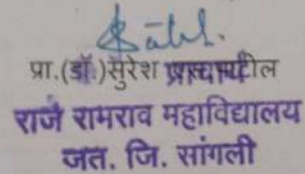 प्रा.(डॉ.)सुरेश पाटील
प्राचार्य
राजे रामराव महाविद्यालय
जत. जि. सांगली